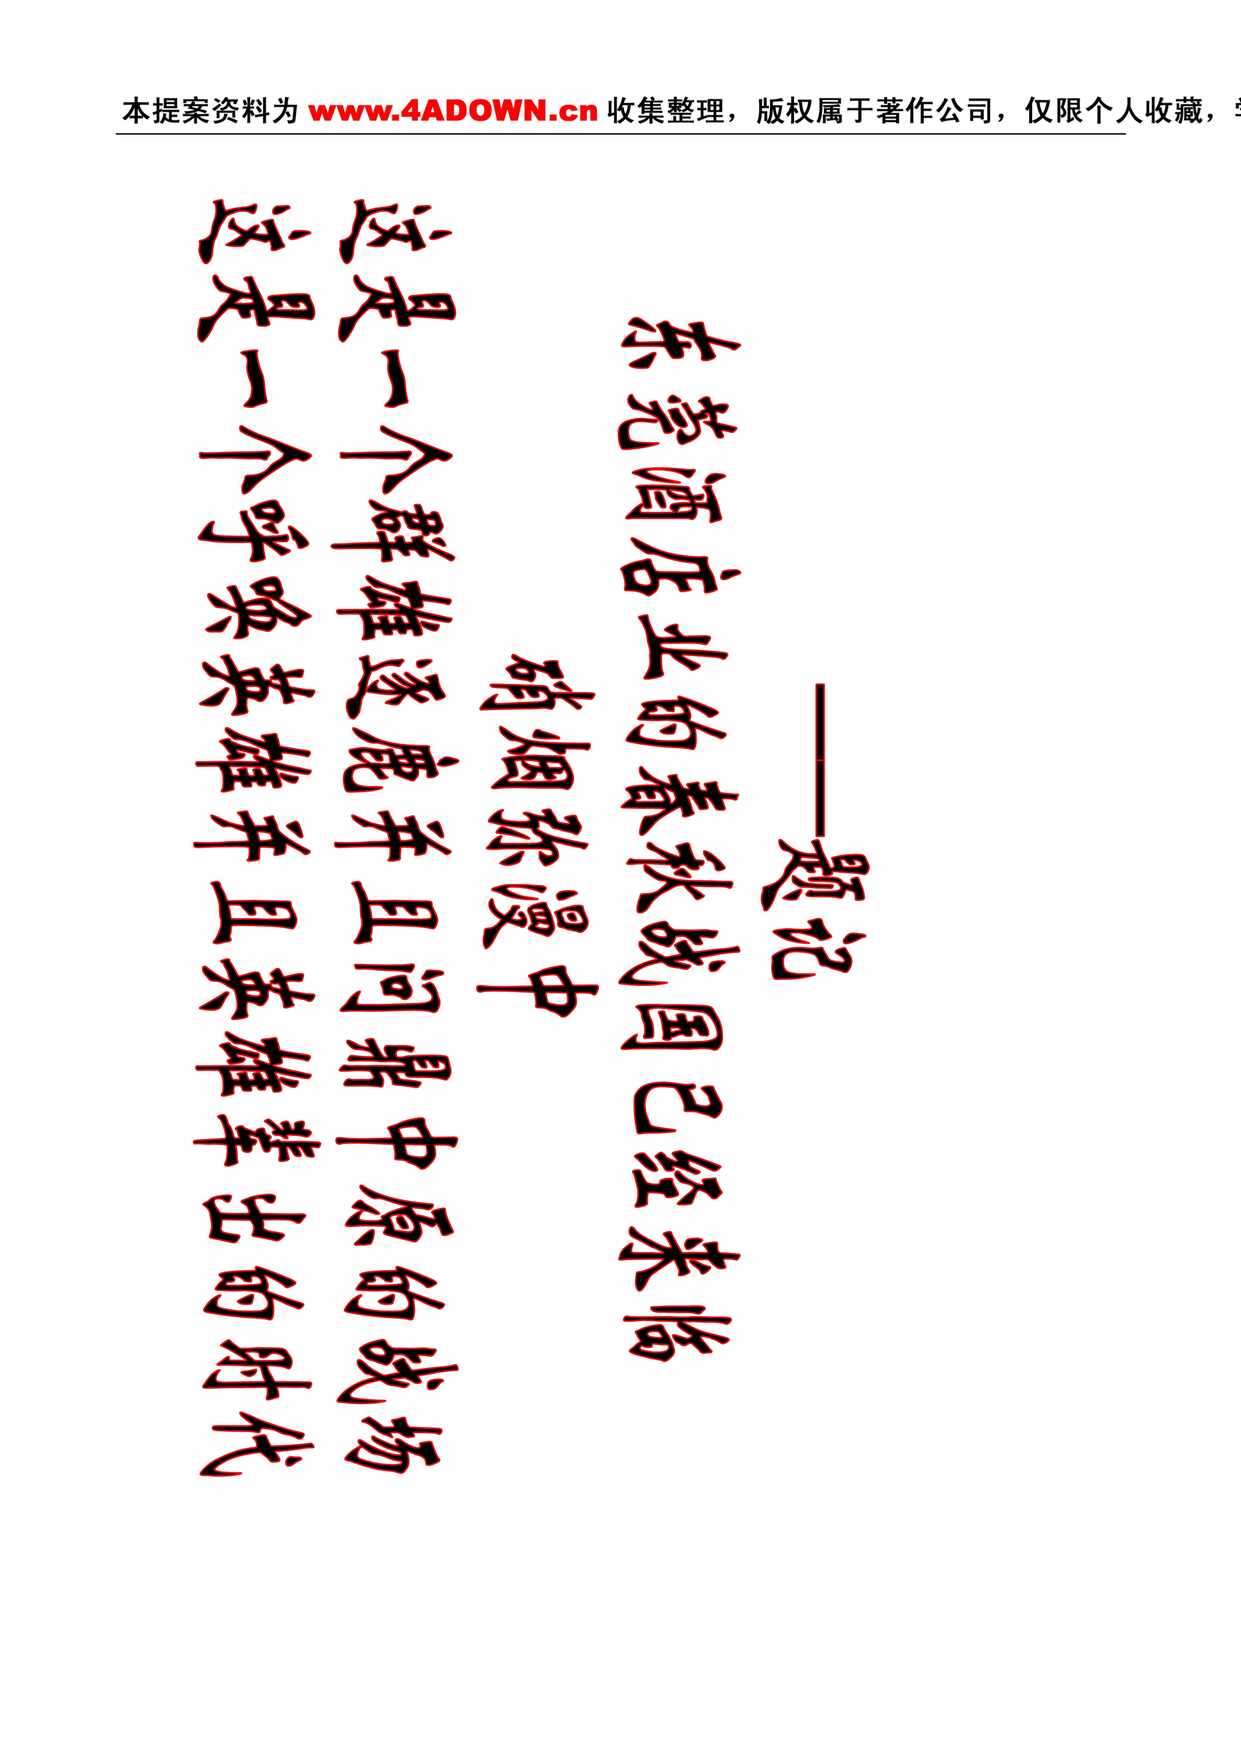 本提案资料为 www.4ADOWN.cn 收集整理，版权属于著作公司，仅限个人收藏，
——题记
东莞酒店业的春秋战国已经来临
硝烟弥漫中
这是一个群雄逐鹿并且问鼎中原的战场
这是一个呼唤英雄并且英雄辈出的时代